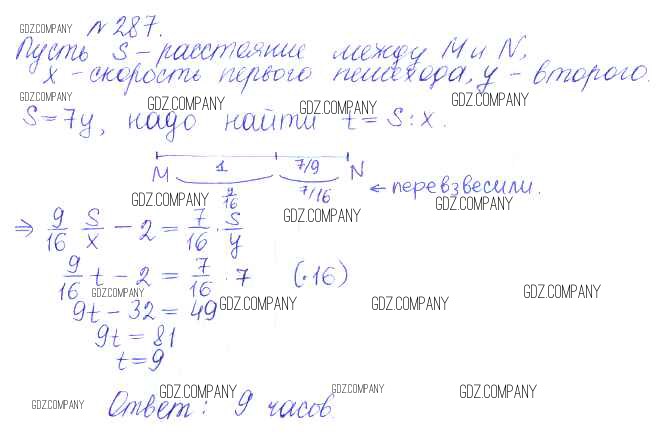 GDZ.COMPANY № 287.
Пусть S - расстояние между M и N,
x - скорость первого пешехода, y - второго.
GDZ.COMPANY
GDZ.COMPANY GDZ.COMPANY GDZ.COMPANY
S = 7y, надо найти t = S : x.
1 7/9
M N
9/16 7/16 ← перевзвесили.
GDZ.COMPANY GDZ.COMPANY GDZ.COMPANY
⇒ 9/16 S/x - 2 = 7/16 · S/y
9/16 t - 2 = 7/16 · 7 (·16)
GDZ.COMPANY GDZ.COMPANY
9t - 32 = 49 GDZ.COMPANY GDZ.COMPANY
9t = 81
t = 9
GDZ.COMPANY GDZ.COMPANY GDZ.COMPANY
GDZ.COMPANY Ответ: 9 часов.